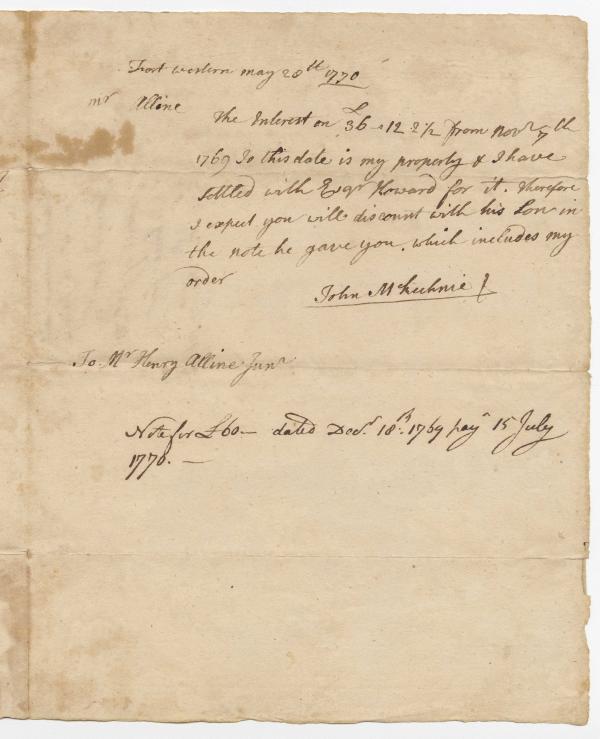 Fort western may 28th 1770
mr Alline
The Interest on £36 - 12 - 2 1/2 from Novr 7th
1769 To this date is my property & I have
settled with Esqr Howard for it. Therefore
I expect you will discount with his Son in
the note he gave you. which includes my
order
John McKechnie
To Mr Henry Alline Junr
Note for £60 — dated Decr 18th 1769 pay 15 July
1770. —